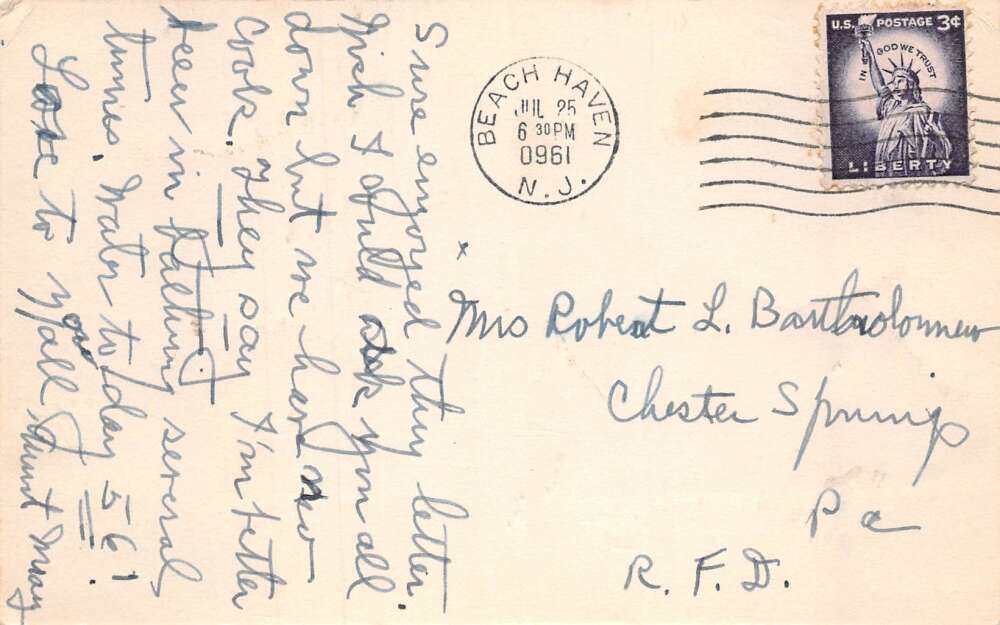 Sure enjoyed thy letter.
Wish I could ask you all
down but we have no
Cook. They say I'm better
been in bathing several
times. Water today 56!
Love to you all Aunt Mary
BEACH HAVEN
JUL 25
6 30 PM
0961
N. J.
U.S. POSTAGE 3¢
IN GOD WE TRUST
LIBERTY
Mrs Robert L. Bartholomew
Chester Springs
Pa
R. F. D.